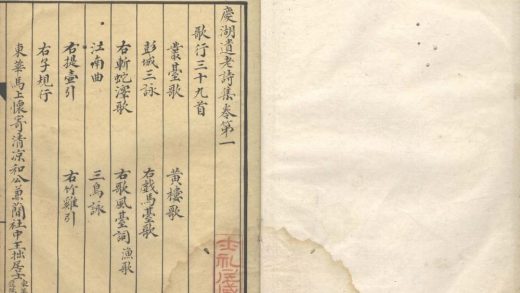 慶湖遺老詩集卷第一
歌行三十九首
叢臺歌 黃樓歌
彭城三詠 右戲馬臺歌
右斬蛇澤歌 右歌風臺詞 漁歌
江南曲 三鳥詠
右提壺引 右竹雞引
右子規行
東華馬上懷寄清凉和公兼簡社中王拙居士